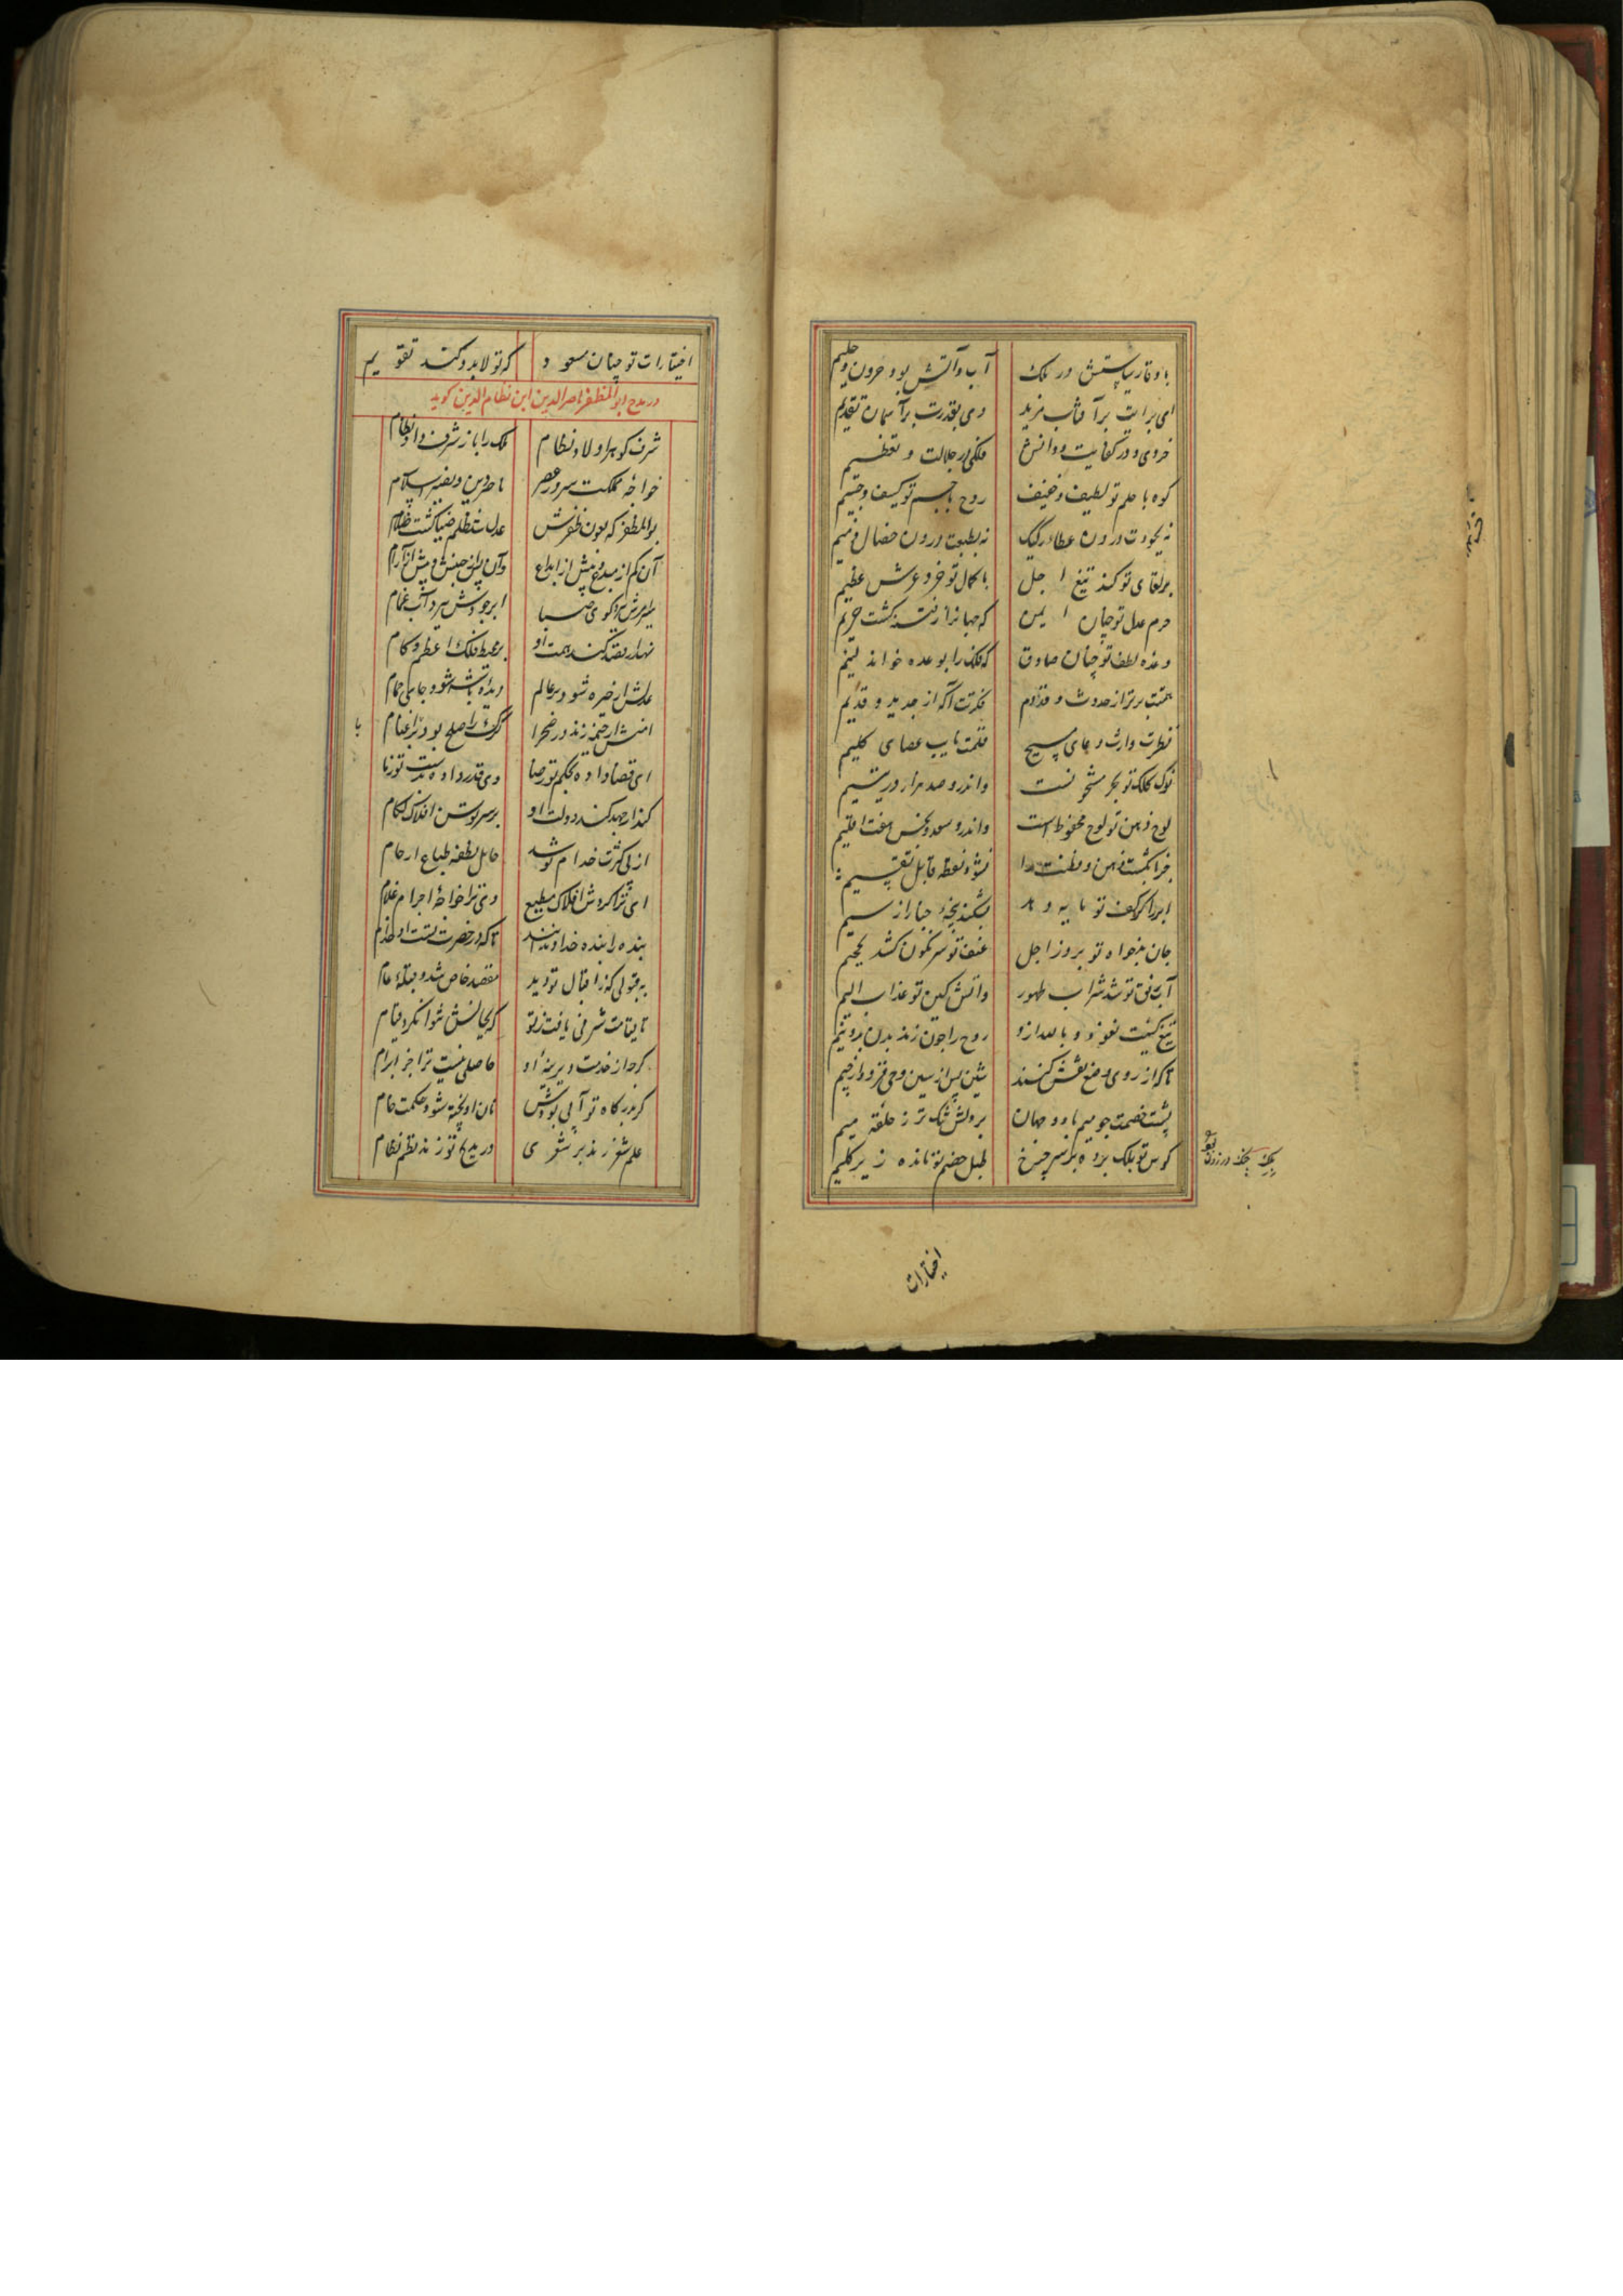 با وقار سیاستش در ملک آب و آتش بود حرون و حلیم
ای برایت بر آفتاب مزید وی بقدرت بر آسمان تقدیم
خردی و در کفایت و دانش فلکی در جلالت و تعظیم
کوه با حلم تو لطیف و خفیف روح با جسم تو کثیف و جسیم
نه بجودت درون عطاء رکیک نه بطبعت درون خصال ذمیم
بر لقای تو کند تیغ اجل با کمال تو خرد عرش عظیم
حرم عدل تو چنان ایمن که جهانرا ز فتنه گشت حریم
وعده لطف تو چنان صادق که فلک را بوعده خواند لئیم
همتت برتر از حدوث و قدم فکرتت آگه از جدید و قدیم
نظرت وارث دعای مسیح قلمت نایب عصای کلیم
نوک کلک تو بحر مسحونست واندرو صد هزار در یتیم
لوح ذهن تو لوح محفوظ است واندرو سعد و نحس هفت اقلیم
جز بانگشت ذهن و فطنت تو نشود نقطه قابل تقسیم
ابر را گر کف تو مایه دهد بشکند پنجهٔ چنار از سیم
جان بدخواه تو بروز اجل عنف تو سرنگون کشد بجحیم
آب رفق تو شد شراب طهور واتش کین تو عذاب الیم
تیغ کینت نعوذ و بالله ازو روح را چون زند بدن بدو نیم
تا که از روی وضع نقش کنند شین پس از سین و حی فرود از جیم
پشت خصمت چو میم باد و جهان بر دلش تنگ تر ز حلقه میم
کوس تو بلک برده بر سر چرخ طبل خصم تو مانده زیر گلیم
اختیارات
اختیارات تو چنان مسعود که تولا بدو کند تقویم
در مدح ابوالمظفر ناصرالدین ابن نظام الدین گوید
شرف گوهر اولاد نظام ملک را باز شرف داد و نظام
خواجهٔ مملکت سرور عصر ناصر دین و نصیر اسلام
بوالمظفر که بعون ظفرش عدل شد ظلم ضیا گشت ظلام
آن کم از مبدع و بیش از ابداع وآن پس از جنبش و پیش از آرام
ابر جودش ببرد آب غمام
نهمار قصد کند همت او بر محیط فلک اعظم گام
عدلش ار خیره شود بر عالم دیدهٔ باشه شود جای حمام
امنش ار خیمه زند در صحرا گرگ را صلح بود با اغنام
ای قضا داده بحکم تو رضا وی قدر داده بدست تو زمام
کند ار جهد کند دولت او بر سر توسن افلاک لگام
از پی کثرت خدام تو شد حامل نطفه طباع ارحام
ای ترا گردش افلاک مطیع وی ترا خواجهٔ اجرام غلام
بنده را بنده خداوندانند تا که در حضرت تست از خدام
به قبولی که ز اقبال تو دید مقصد خاص شد و قبلهٔ عام
تا قیامت شرفی یافت ز تو که بجانش نتوانکرد قیام
گرچه از خدمت دیرینهٔ او حاصلی نیست ترا جز ابرام
گر بدرگاه تو آبی بودش نان او پخته شود حکمت خام
علم شعر زند بر شعری در مدیح تو زند نظم نظام